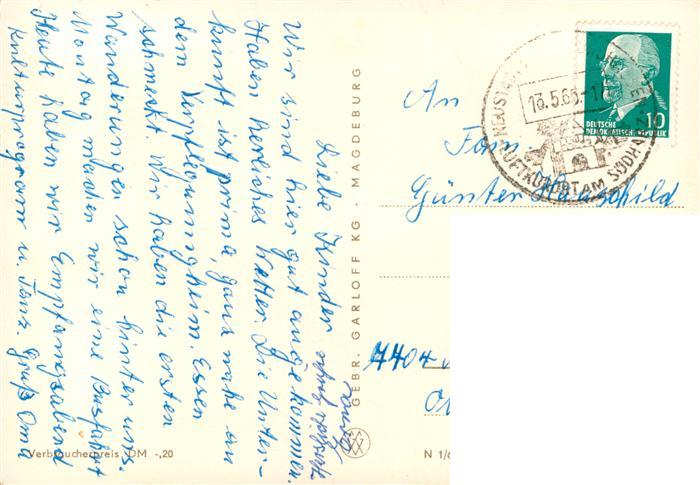 Liebe Kinder
Wir sind hier gut angekommen.
Haben herrliches Wetter. Die Unter-
kunft ist prima, ganz nahe an
dem Verpflegungsheim. Essen
schmeckt. Wir haben die ersten
Wanderungen schon hinter uns.
Montag machen wir eine Busfahrt
Heute haben wir Empfangsabend
Kulturprogramm u. Tanz. Gruß Oma
Verbraucherpreis DM -,20
GEBR. GARLOFF KG · MAGDEBURG
N 1/6
LUFTKURORT AM SÜDHARZ
DEUTSCHE
DEMOKRATISCHE REPUBLIK
10
An
Fam.
Günter Hauschild
7404